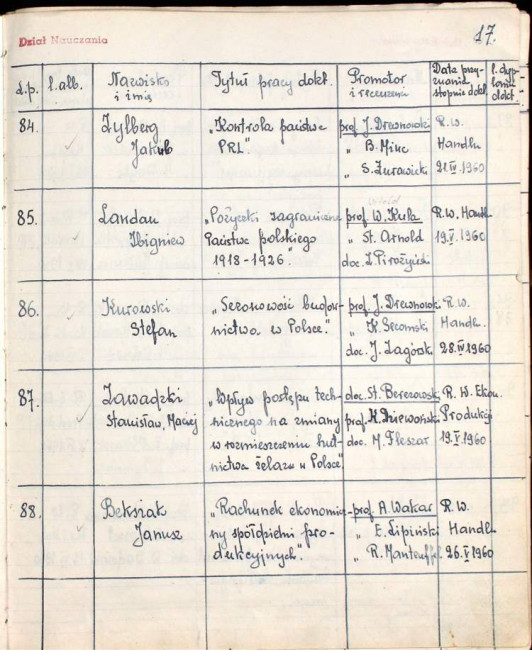 Dział Nauczania
17.
L.p. l. alb. Nazwisko i imię Tytuł pracy dokt. Promotor i recenzenci Data przyznania stopnia dokt. l. dyplomu dokt.
84. Zylberg Jakub
„Kontrola państw. PRL"
prof. J. Drewnowski
„ B. Minc
„ S. Żurawicki
R.W. Handlu
21.IV.1960
85. Landau Zbigniew
„Pożyczki zagraniczne
Państwa polskiego
1918-1926"
Witold
prof. W. Kula
„ St. Arnold
doc. Z. Pirożyński
R.W. Handl.
19.V.1960
86. Kurowski Stefan
„Sezonowość budow-
nictwa w Polsce"
prof. J. Drewnowsk.
„ K. Secomski
doc. J. Zagórsk.
R.W.
Handl.
28.IV.1960
87. Zawadzki
Stanisław, Maciej
„Wpływ postępu tech-
nicznego na zmiany
w rozmieszczeniu hut-
nictwa żelaza w Polsce"
doc. St. Berezowski
prof. K. Dziewoński
doc. M. Fleszar
R.W. Ekon.
Produkcji
19.V.1960
88. Beksiak
Janusz
„Rachunek ekonomicz-
ny spółdzielni pro-
dukcyjnych"
prof. A. Wakar
„ E. Lipiński
„ R. Manteuffel
R.W.
Handlu
26.V.1960